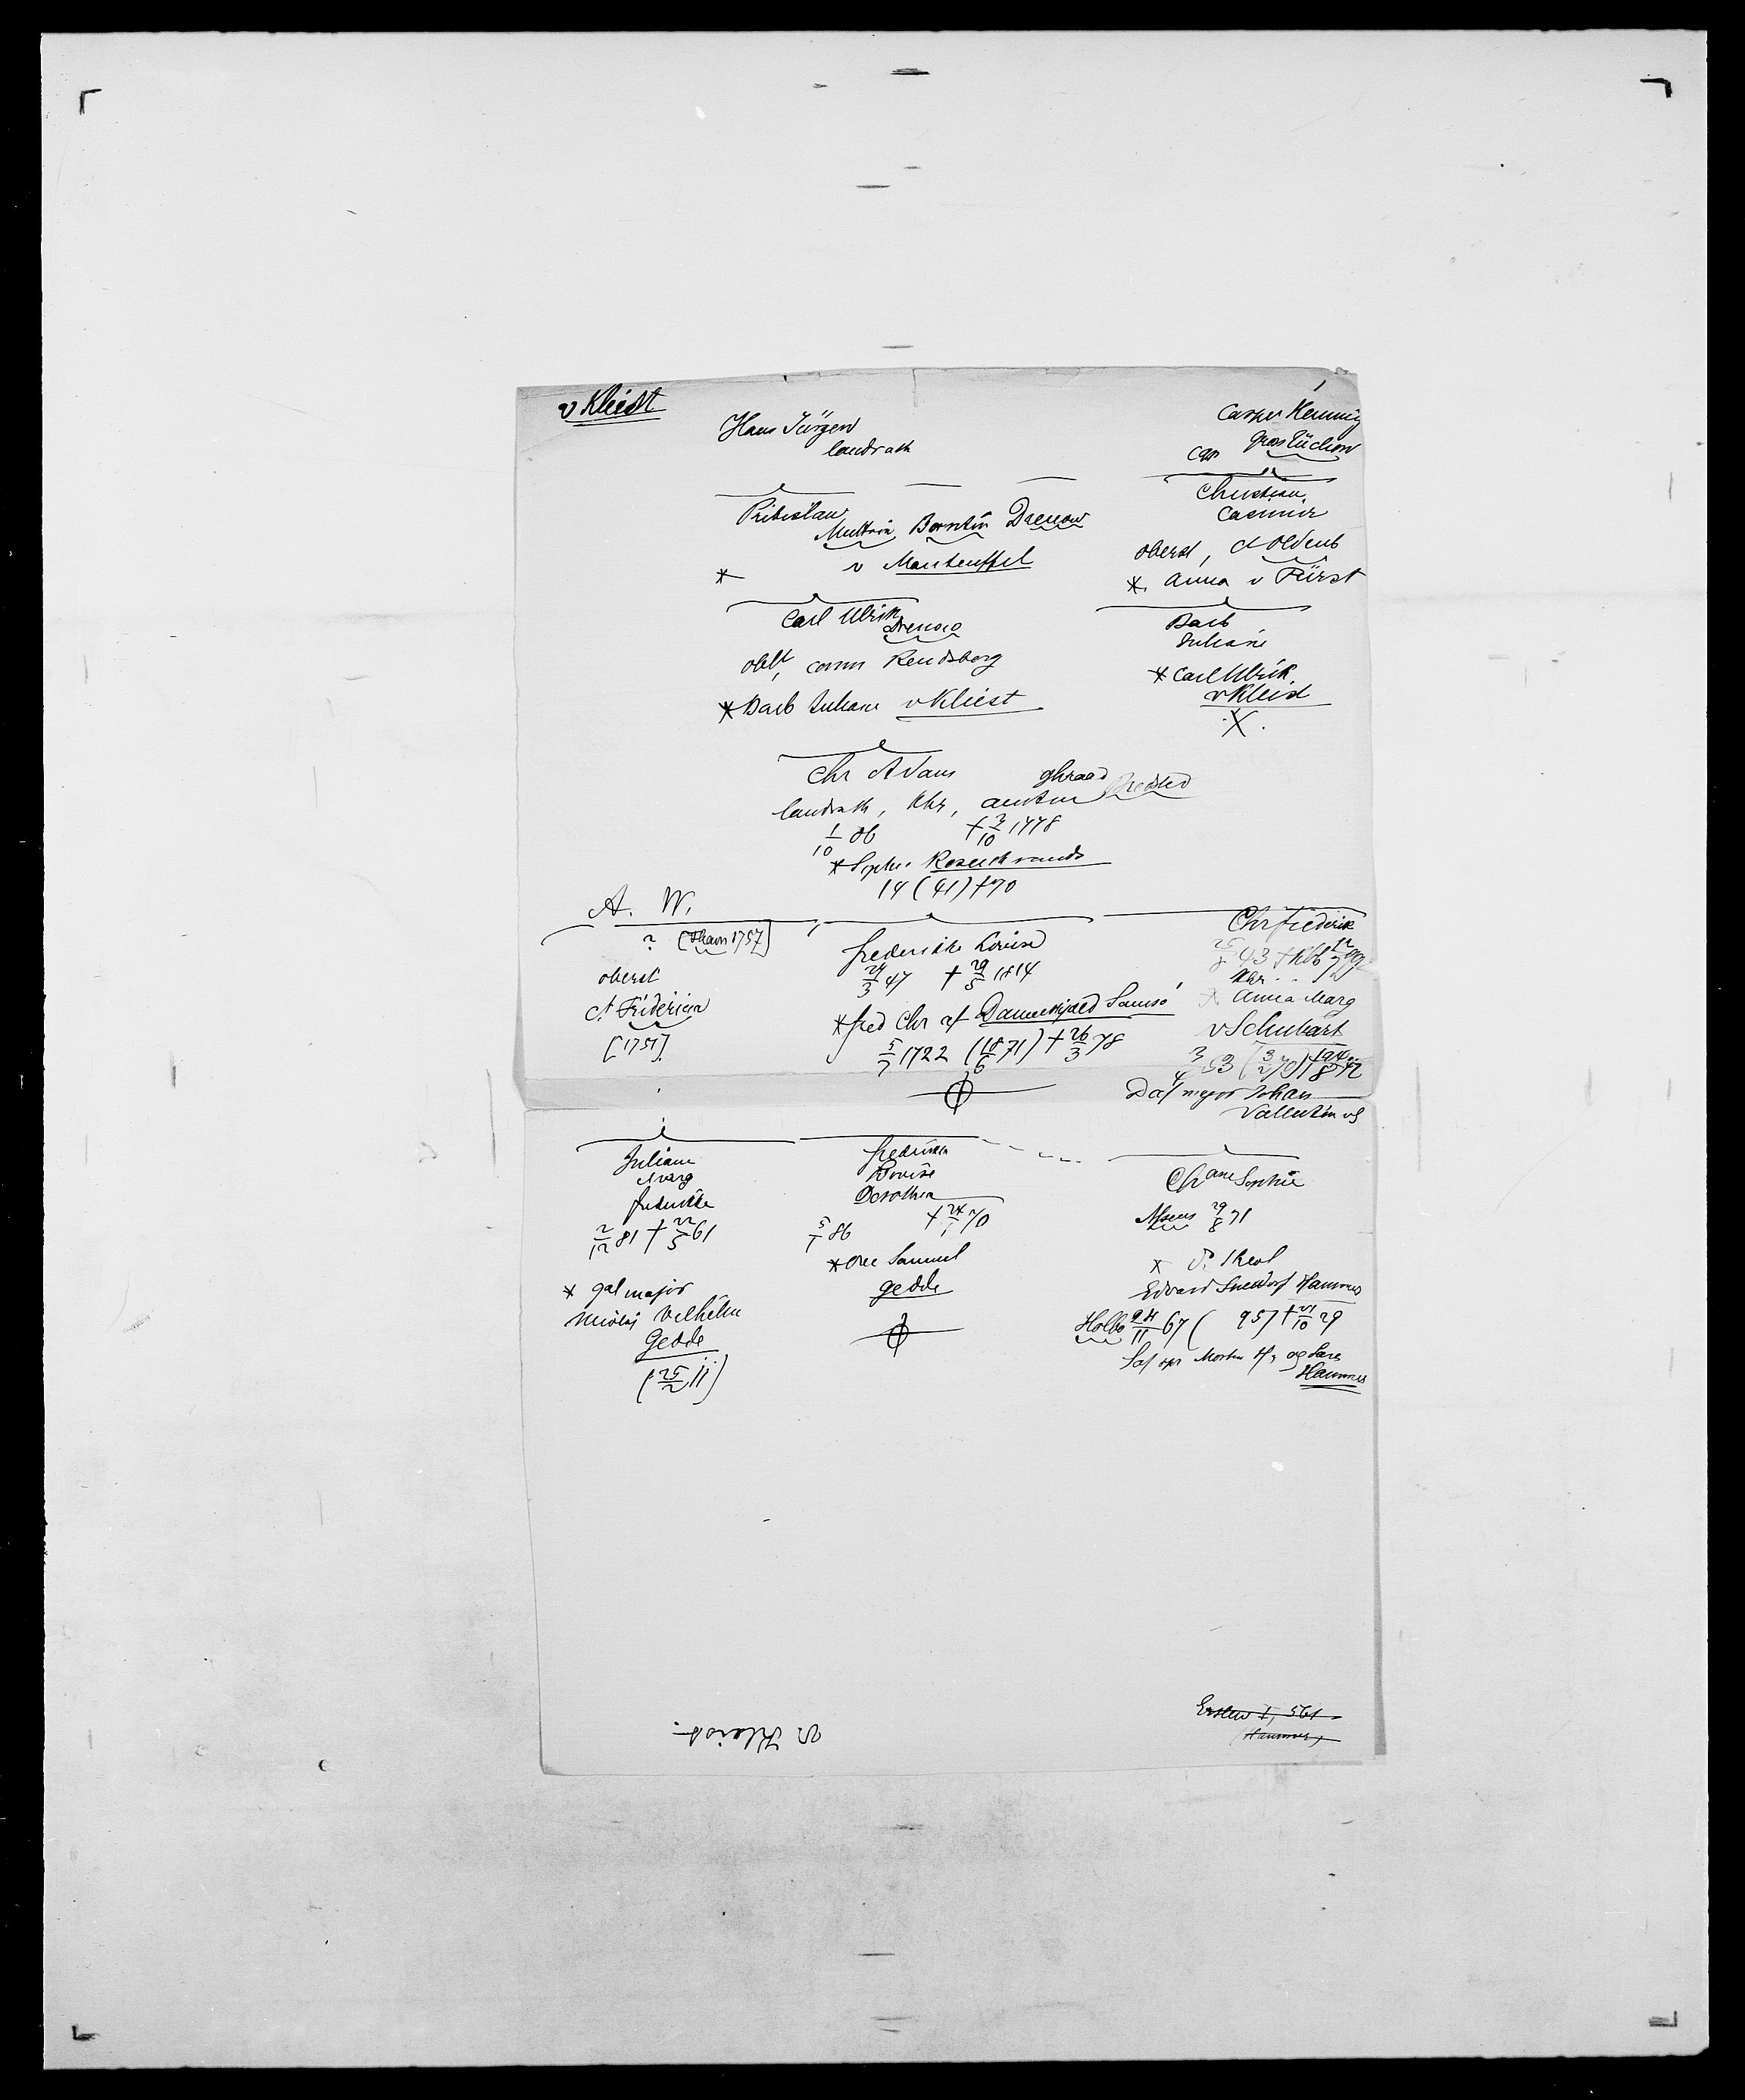 v Kleist
Hans Jürgen
landrath
Casper Henning
Gross Tüchow
Pribislaw
Muttrin, Borntin Drenow
v Manteuffel
*
Christian
Casimir
oberst, ct Oldenb
* Anna v Fürst
Carl Ulrik
Drenow
oblt, comm Rendsborg
* Barb Juliane v Kliest
Barb
Juliane
* Carl Ulrik
v Kleist
X
Chr Adam
ghraad
landrath, khr, amtm Bredsted
1/10 06 † 2/10 1778
* Sophie Rosenkrands
14 (41) † 70
A. W.
? (Thavn 1757)
oberst
ct Fridericia
[1751]
frederikke Lovise
24/3 47 † 29/5 1814
* fred Chr af Danneskjold Samsø
5/7 1722 (18/6 71) † 26/3 78
Chr frederik
25/8 43 † Kbh
Khr
* Anna Marg
v Schubart
3/4 53 (3/2 70) †
Daf major Johan
Vallentin v S
Juliane
Marg
frederikke
2/12 81 † 22/5 61
* gal major
Nicolaj Vilhelm
Gedde
(25/2 11)
frederikke
Lovise
Dorothea
5/1 86 † 24/1 70
* Ove Samuel
gedde
Chane Sophie
Assens 29/8 71
Edvard Snedorf Hammer
Holbo 24/11 67 ( 95) † 21/10 29
Saf spr Morten H, og Sara
Hammer
Erslew I, 561
(Hammer)
v Kleist